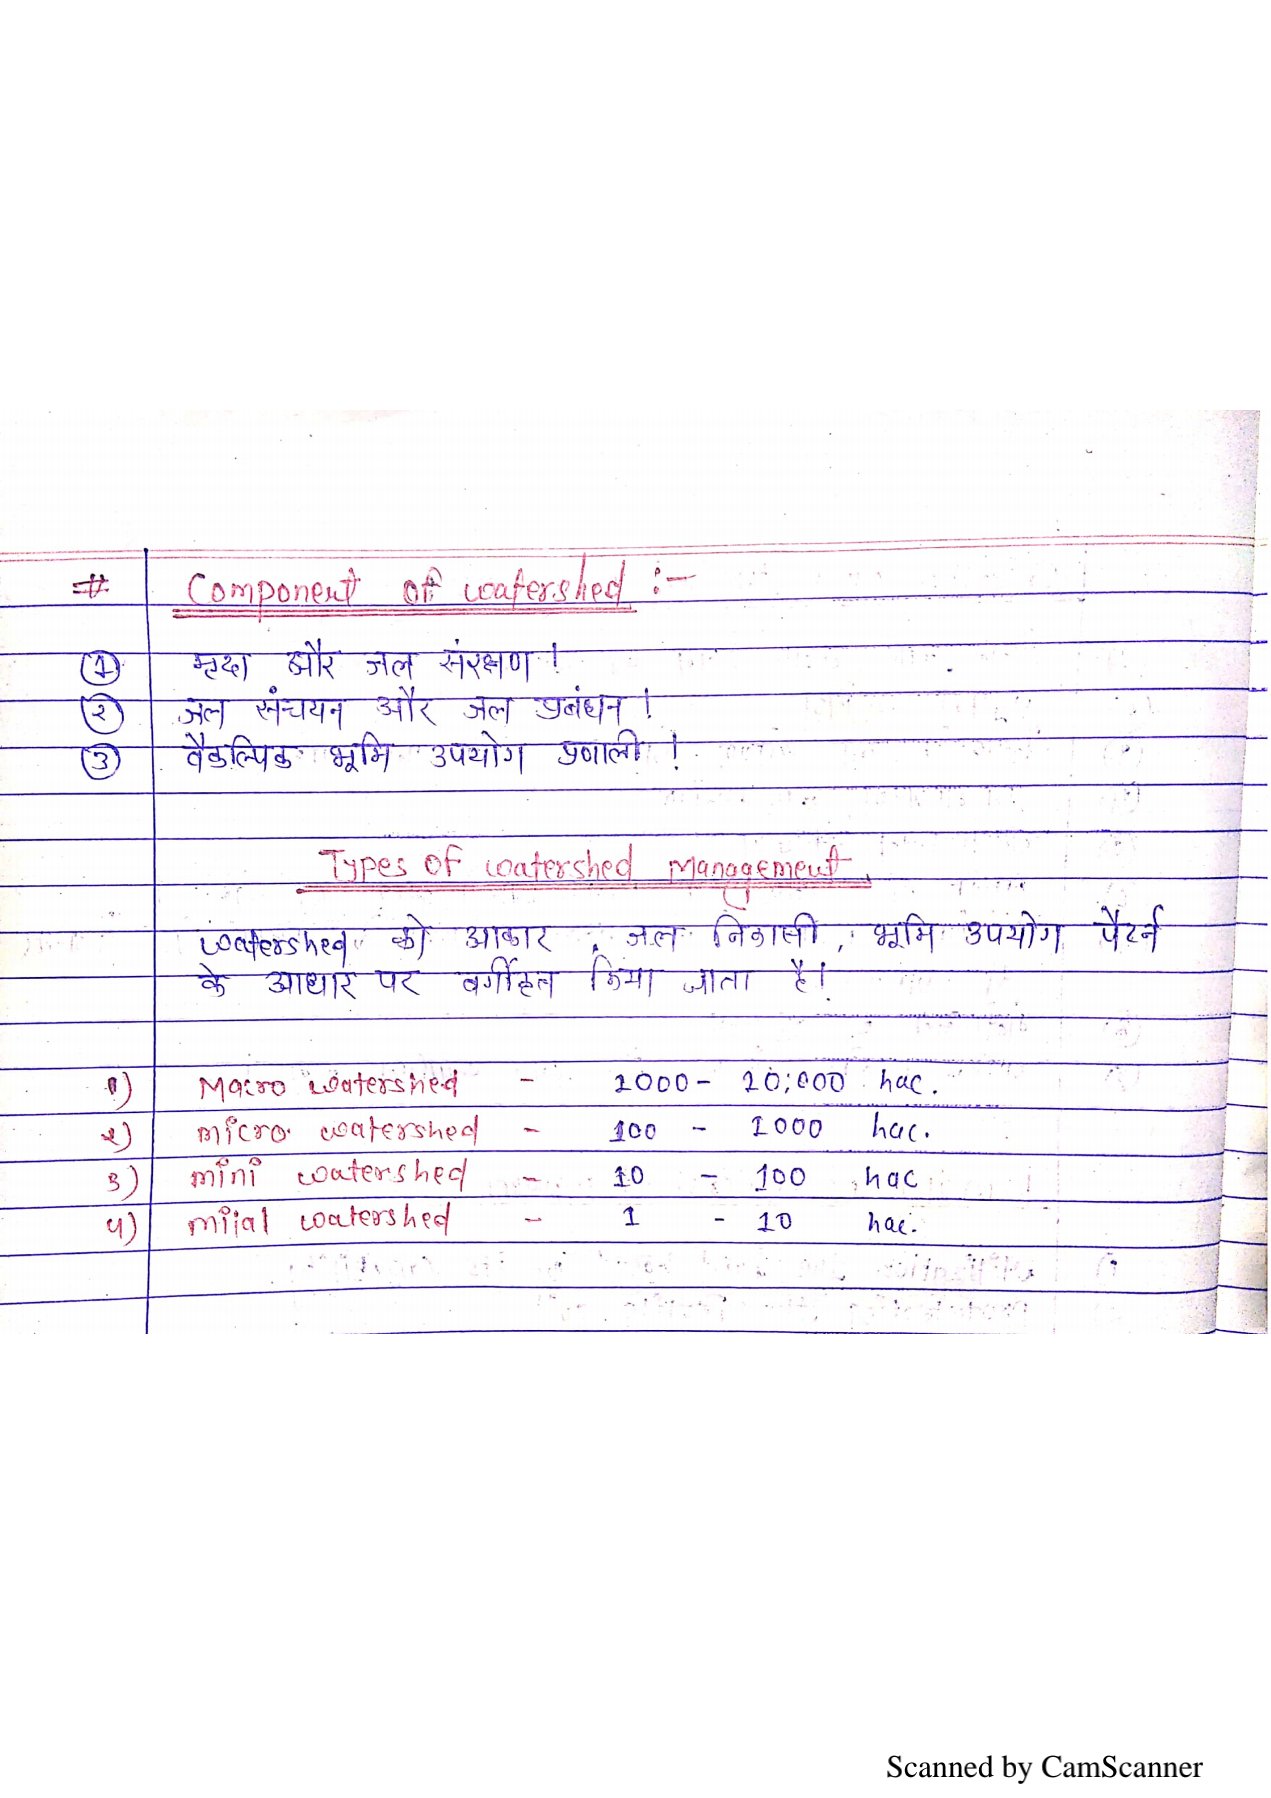 # Component of watershed :-
① मृदा और जल संरक्षण ।
② जल संचयन और जल प्रबंधन ।
③ वैकल्पिक भूमि उपयोग प्रणाली ।
Types of watershed Management
watershed को आकार , जल निकासी , भूमि उपयोग पैटर्न
के आधार पर वर्गीकृत किया जाता है।
१) Macro watershed - 1000 - 10,000 hac.
२) micro watershed - 100 - 1000 hac.
३) mini watershed - 10 - 100 hac
४) mijal watershed - 1 - 10 hac.
Scanned by CamScanner